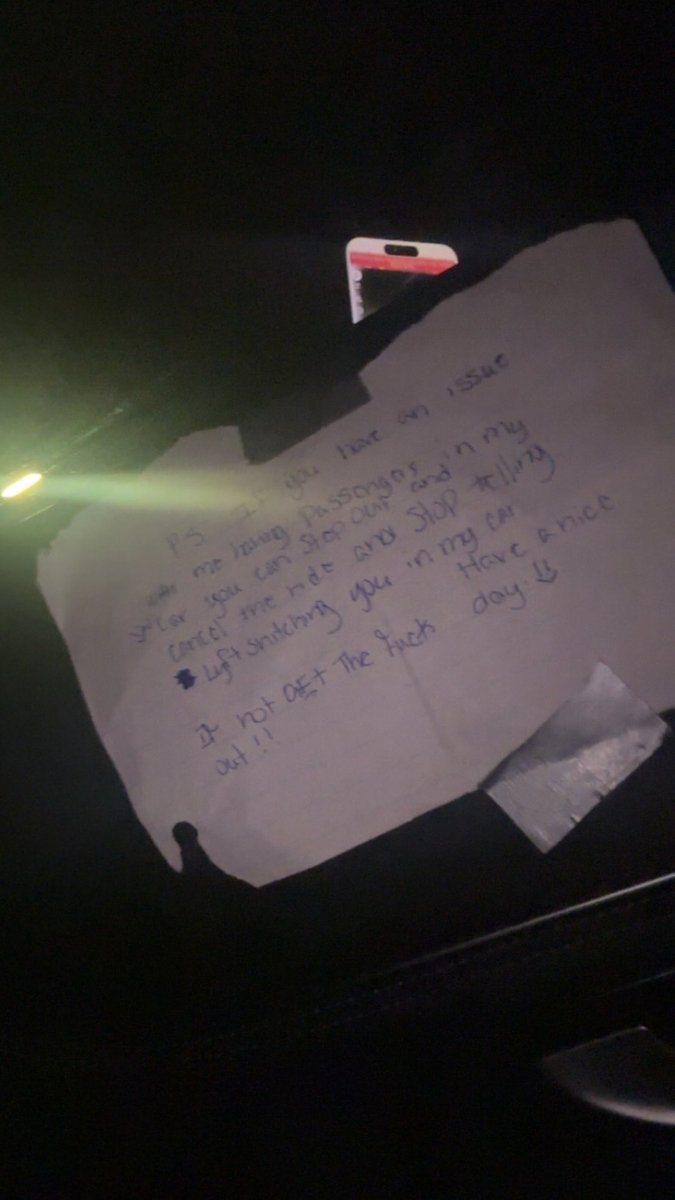 PS If you have an issue
with me having passengers in my
car you can step out and
cancel the ride and stop telling
Lyft snitching you in my car
Have a nice
day
If not GET The fuck
out!!